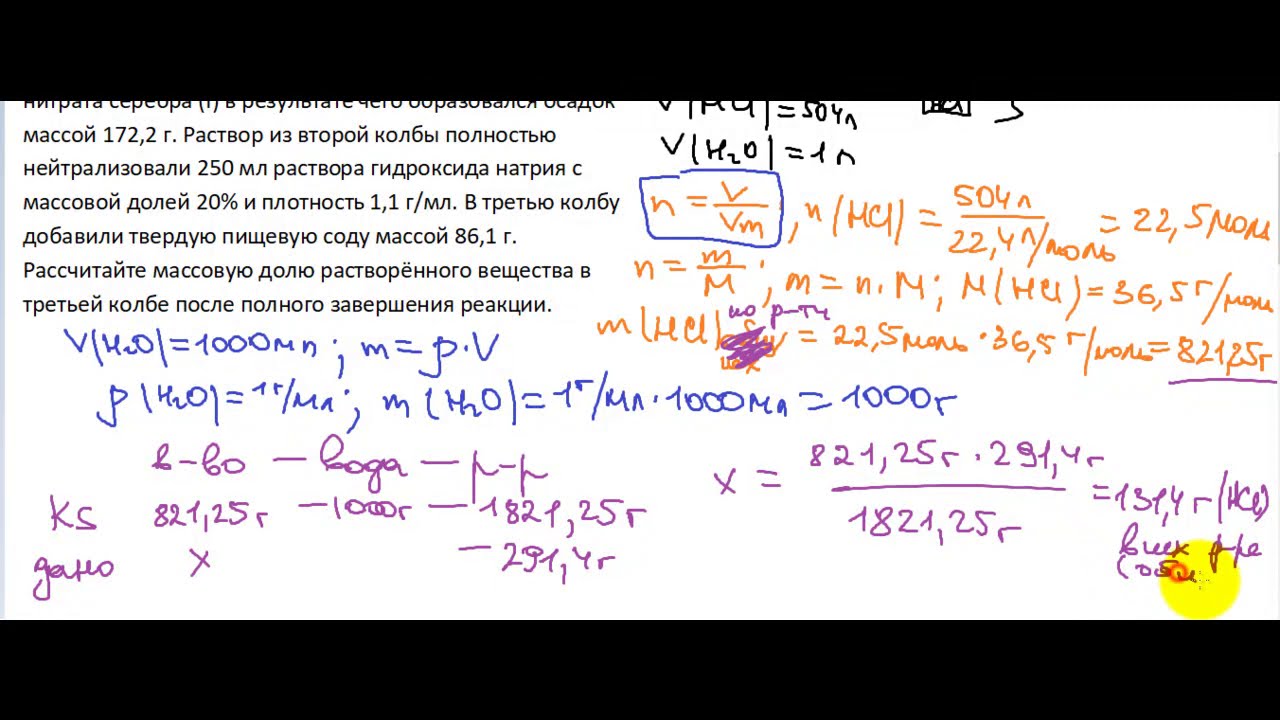 нитрата серебра (I) в результате чего образовался осадок
массой 172,2 г. Раствор из второй колбы полностью
нейтрализовали 250 мл раствора гидроксида натрия с
массовой долей 20% и плотность 1,1 г/мл. В третью колбу
добавили твердую пищевую соду массой 86,1 г.
Рассчитайте массовую долю растворённого вещества в
третьей колбе после полного завершения реакции.
V(HCl) = 504л
V(H₂O) = 1л
n = V/Vm, n(HCl) = 504л / 22,4л/моль = 22,5моль
n = m/M; m = n·M; M(HCl) = 36,5г/мол
по р-ти
m(HCl) = 22,5моль·36,5г/моль = 821,25г
V(H₂O) = 1000мл; m = ρ·V
ρ(H₂O) = 1г/мл; m(H₂O) = 1г/мл·1000мл = 1000г
в-во — вода — р-р
KS 821,25г — 1000г — 1821,25г
дано X — 291,4г
X = 821,25г·291,4г / 1821,25г = 131,4г(HCl)
в исх р-ре